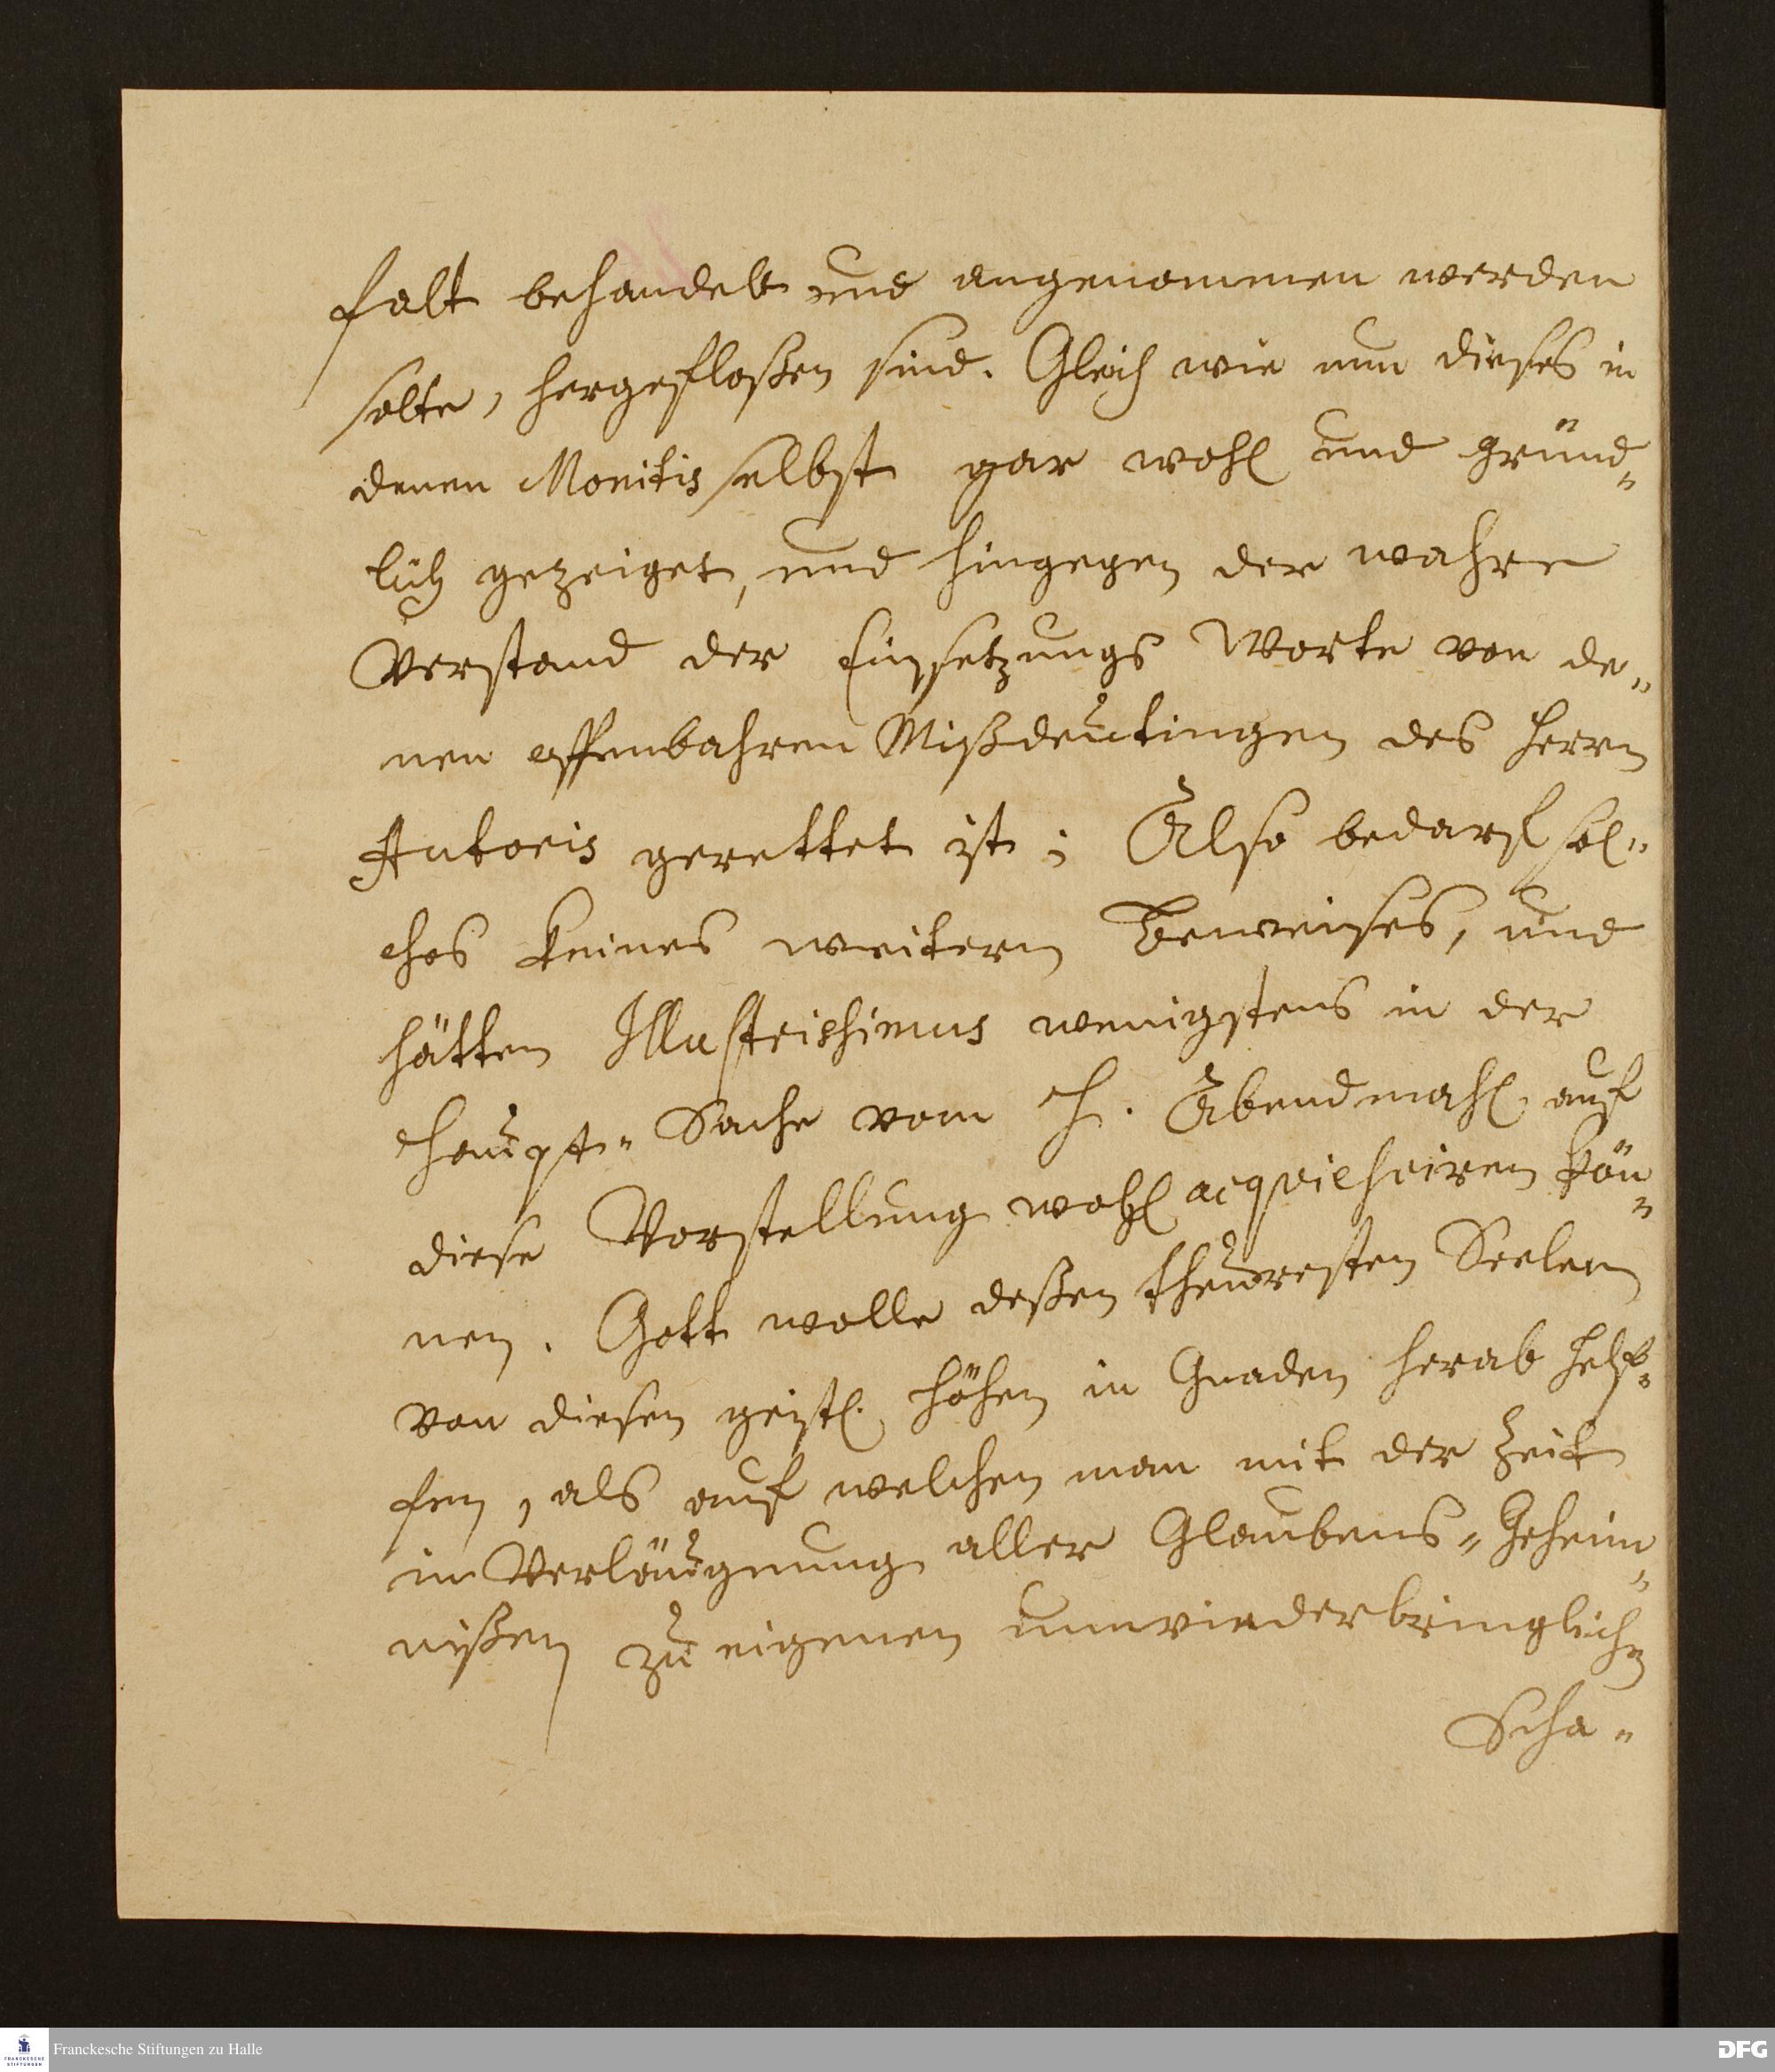 falt behandelt und angenommen werden
solte, hergefloßen sind. Gleich wie nun dieses in
denen Monitis selbst gar wohl und gründ„
lich gezeiget, und hingegen der wahre
Verstand der Einsetzungs Worte von de„
nen offenbahren Mißdeutungen des Herrn
Autoris gerettet ist; Also bedarf sol„
ches keines weitern Beweises, und
hätten Illustrissimus wenigstens in der
Haupt„ Sache vom H. Abendmahl auf
diese Vorstellung wohl acquiesciren kön„
nen. Gott wolle deßen theuresten Seelen
von diesen geistl. Höhen in Gnaden herab helf„
fen, als auf welchen man mit der Zeit
in Verläugnung aller Glaubens„ Geheim„
nißen zu eigenen unwiederbringlichen
Scha„
Franckesche Stiftungen zu Halle
DFG
FRANCKESCHE
STIFTUNGEN